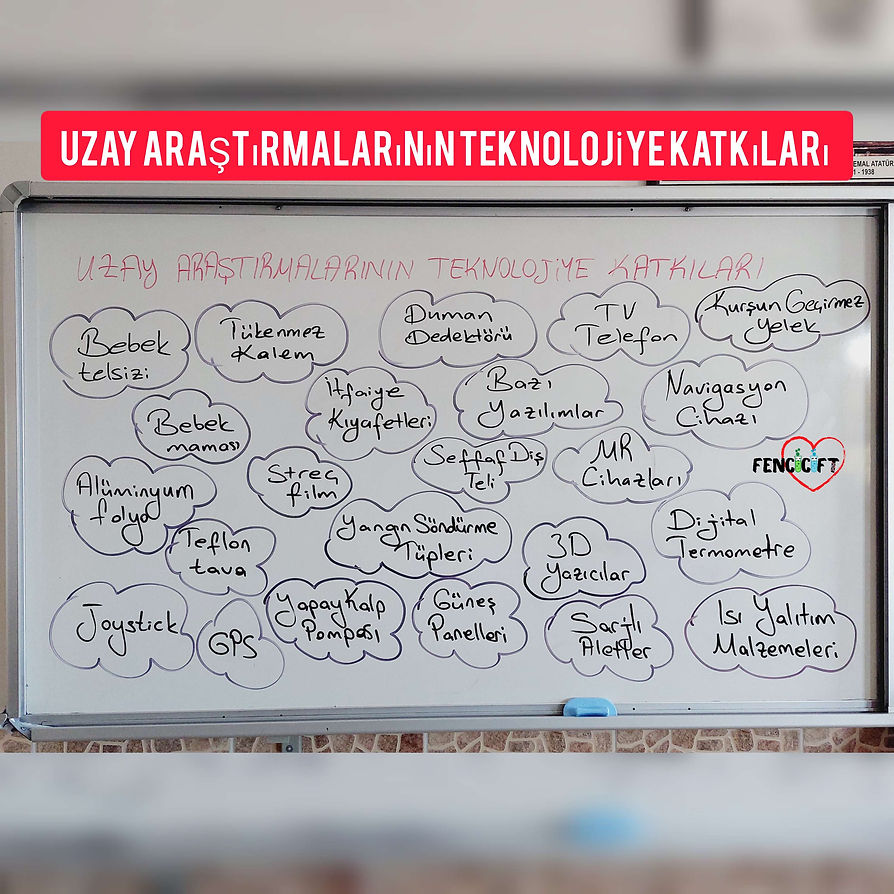 UZAY ARAŞTıRMALARıNıN TEKNOLOJİYE KATKıLARı
EMAL ATATÜR
1 - 1938
UZAY ARAŞTIRMALARININ TEKNOLOJİYE KATKILARI
Bebek
telsizi
Tükenmez
Kalem
Duman
Dedektörü
TV
Telefon
Kurşun Geçirmez
Yelek
Bebek
maması
İtfaiye
Kıyafetleri
Bazı
Yazılımlar
Navigasyon
Cihazı
Alüminyum
folyo
Streç
film
Şeffaf Diş
Teli
MR
Cihazları
FENCİÇİFT
Teflon
tava
Yangın Söndürme
Tüpleri
3D
Yazıcılar
Dijital
Termometre
Joystick
GPS
Yapay Kalp
Pompası
Güneş
Panelleri
Şarjlı
Aletler
Isı Yalıtım
Malzemeleri